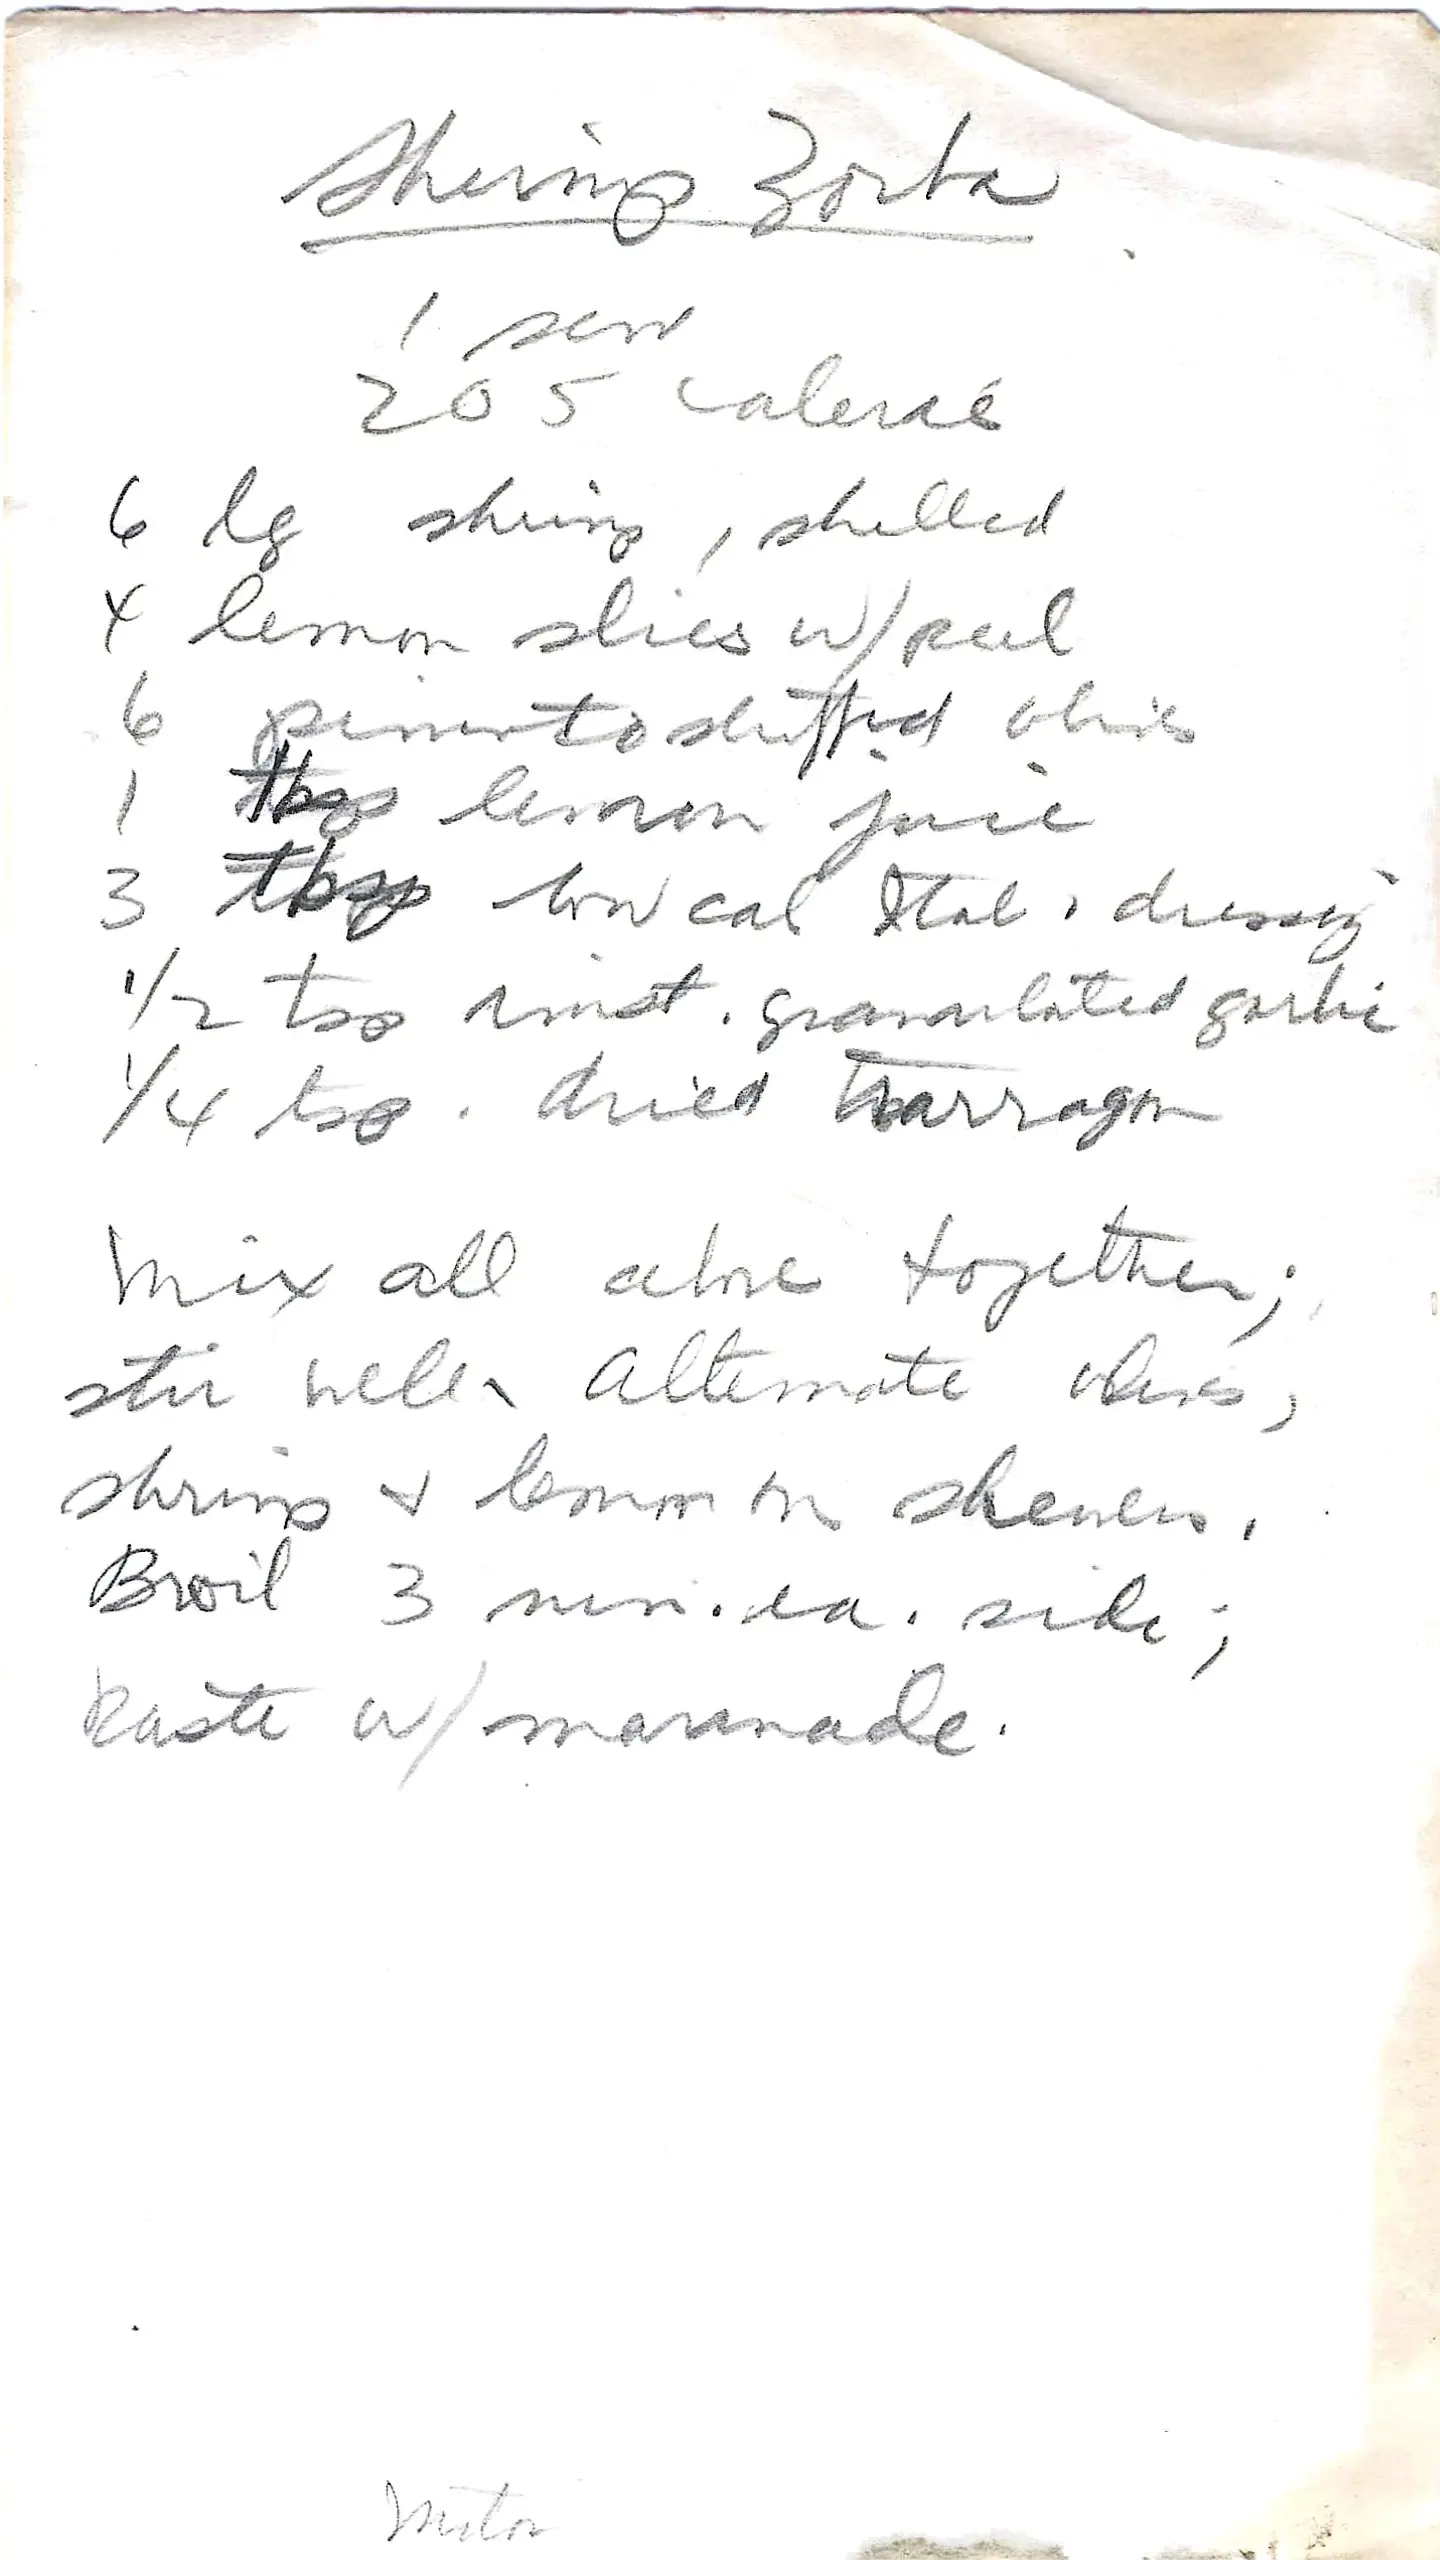 Shrimp Zorba
1 serv
205 calorie
6 lg shrimp, shelled
4 lemon slices w/peel
6 pimento stuffed olives
1 tbsp lemon juice
3 tbsp low cal Ital. dressing
1/2 tsp inst. granulated garlic
1/4 tsp. dried tarragon
Mix all above together;
stir well. Alternate olives,
shrimp & lemon on skewers.
Broil 3 min. ea. side;
baste w/ marinade.